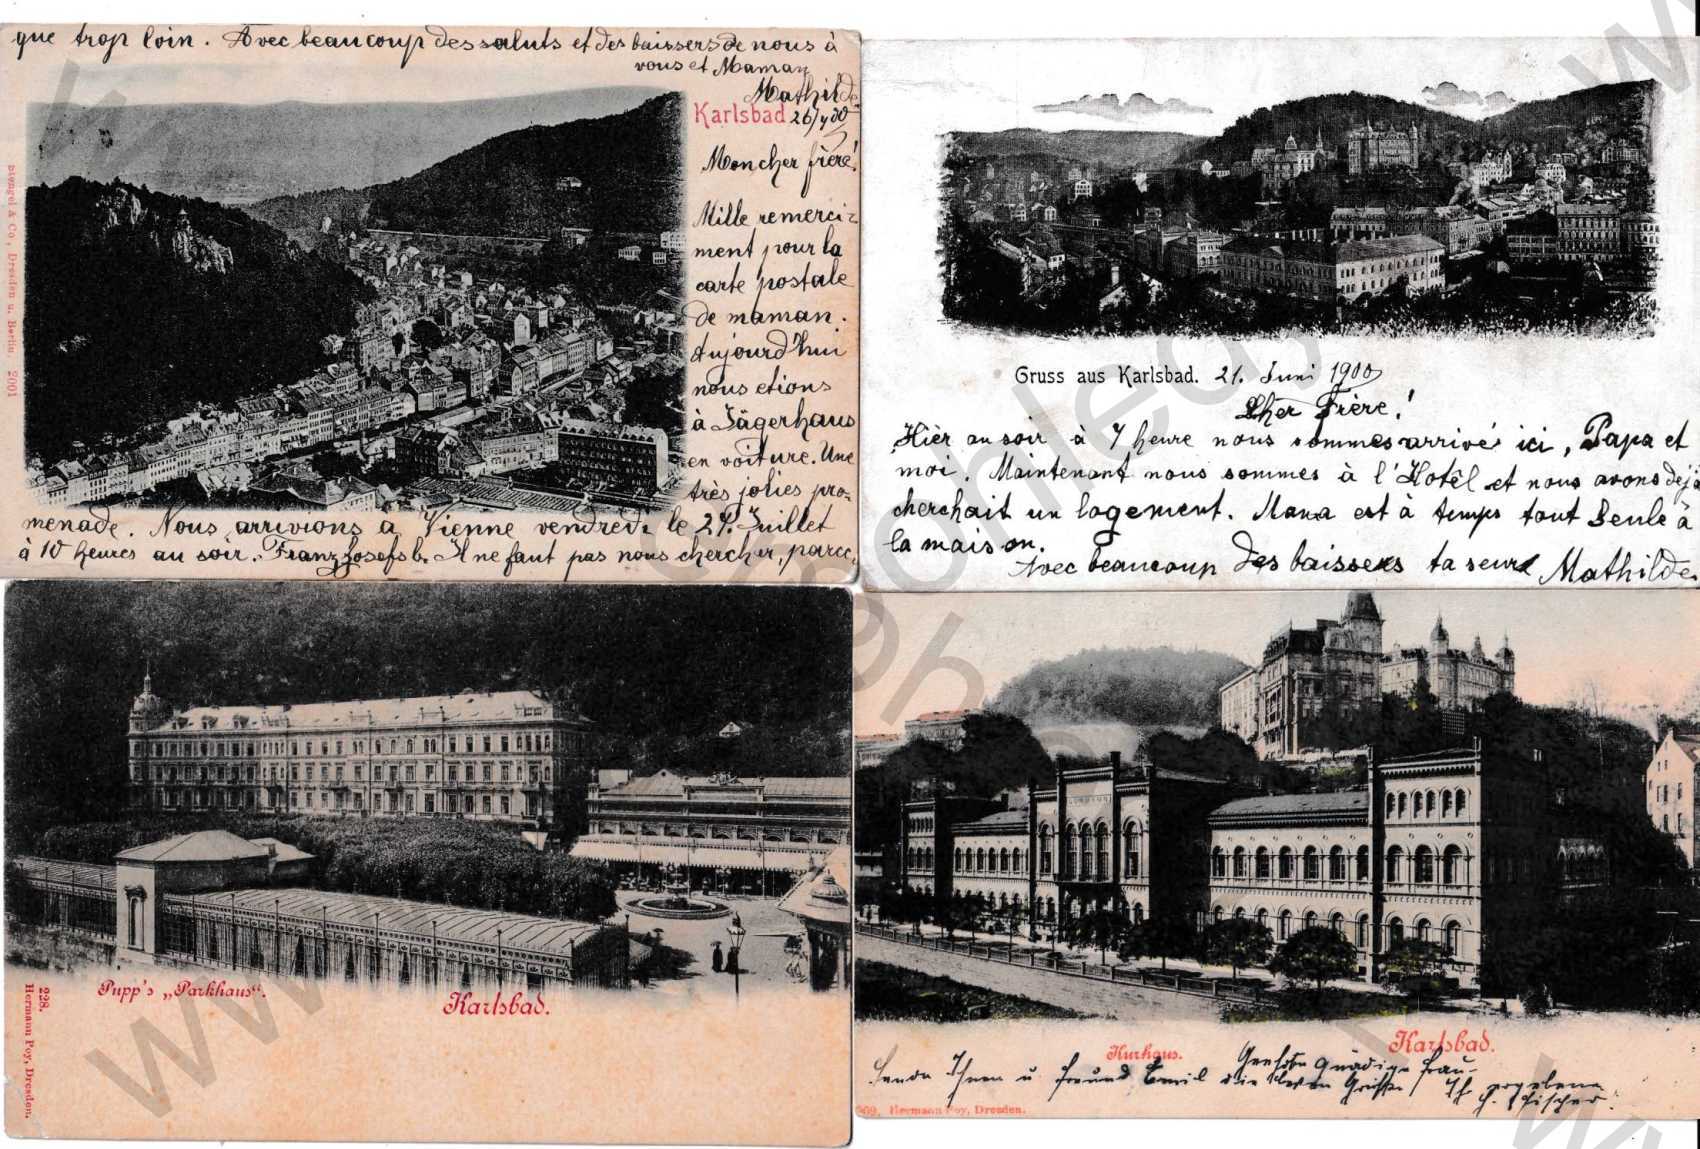 que trop loin. Avec beaucoup des saluts et des baissers de nous à
vous et Maman
Mathilde
Karlsbad 26/7 00
Mon cher frère!
Mille remerci-
ment pour la
carte postale
de maman.
Aujourd'hui
nous etions
à Jägerhaus
en voiture. Une
très jolies pro-
menade. Nous arrivions a Vienne vendredi le 27. Juillet
à 10 heures au soir. Franz Josefsb. Il ne faut pas nous chercher, parce
Stengel & Co, Dresden u. Berlin, 2001
Gruss aus Karlsbad. 21. Juni 1900
Cher Frère!
Hièr au soir à 7 heure nous sommes arrivé ici, Papa et
moi. Maintenant nous sommes à l'Hotêl et nous avons déjà
cherchait un logement. Mana est à temps tout seule à
la maison.
Avec beaucoup des baissers ta seure Mathilde
Pupp's „Parkhaus".
Karlsbad.
228.
Hermann Poy, Dresden.
CURHAUS
Kurhaus.
Karlsbad.
Geehrte Gnädige Frau
Sende Ihnen u Freund Emil die Grüsse Ihr ergebene
Fischer
Hermann Poy, Dresden.
www